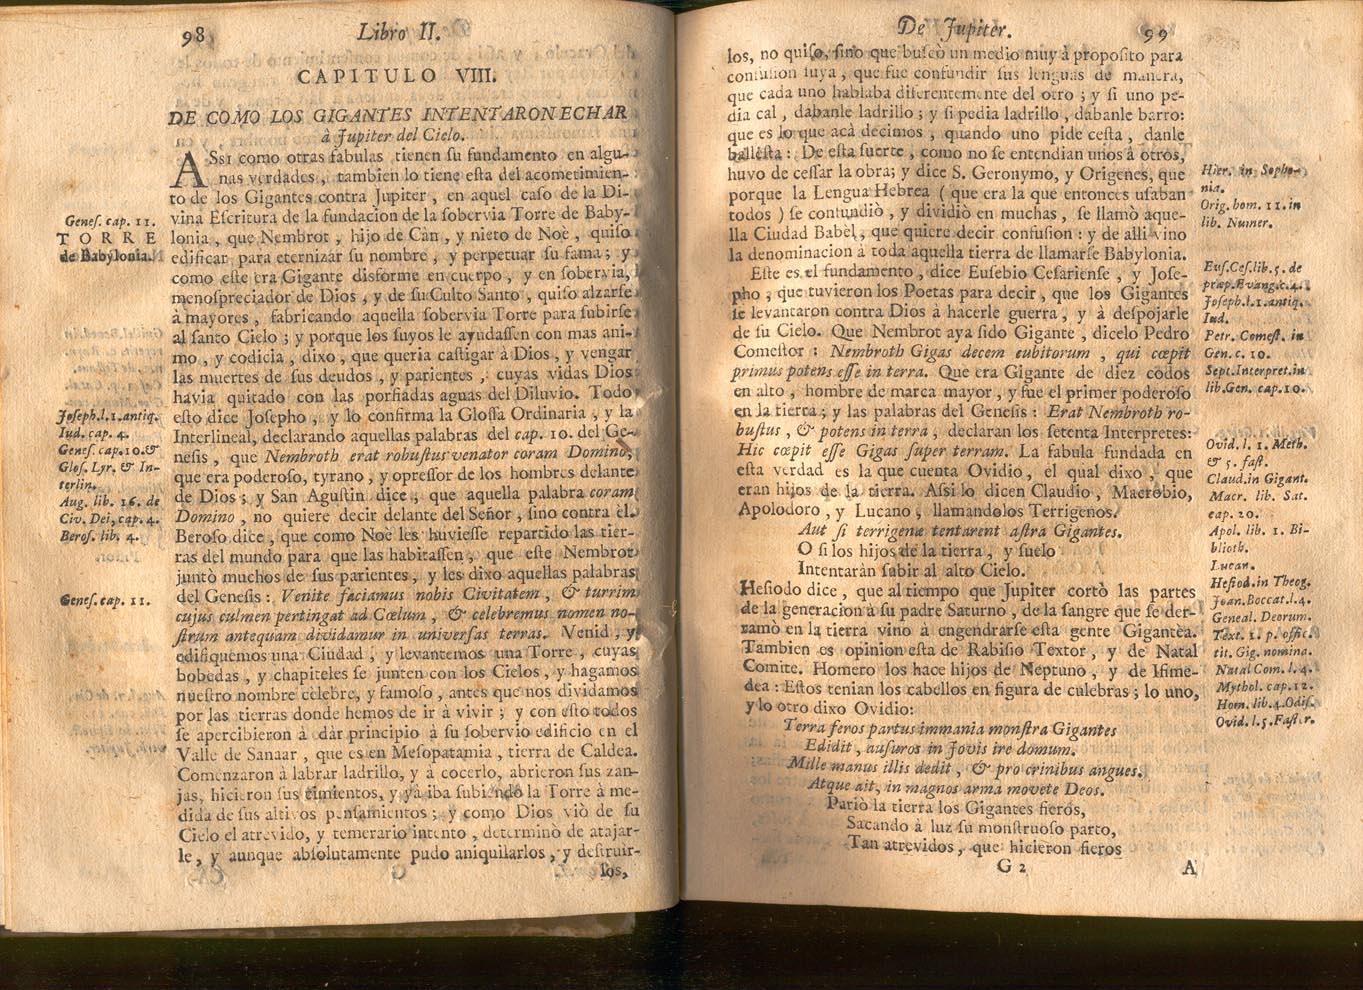 98 Libro II.
CAPITULO VIII.
DE COMO LOS GIGANTES INTENTARON ECHAR
à Jupiter del Cielo.
ASsi como otras fabulas tienen su fundamento en algu-
nas verdades, tambien lo tiene esta del acometimien-
to de los Gigantes contra Jupiter, en aquel caso de la Di-
vina Escritura de la fundacion de la sobervia Torre de Baby-
lonia, que Nembrot, hijo de Càn, y nieto de Noè, quiso
edificar para eternizar su nombre, y perpetuar su fama; y
como este era Gigante disforme en cuerpo, y en sobervia,
menospreciador de Dios, y de su Culto Santo, quiso alzarse
à mayores, fabricando aquella sobervia Torre para subirse
al santo Cielo; y porque los suyos le ayudassen con mas ani-
mo, y codicia, dixo, que queria castigar à Dios, y vengar
las muertes de sus deudos, y parientes, cuyas vidas Dios
havia quitado con las porfiadas aguas del Diluvio. Todo
esto dice Josepho, y lo confirma la Glossa Ordinaria, y la
Interlineal, declarando aquellas palabras del cap. 10. del Ge-
nesis, que Nembroth erat robustus venator coram Domino,
que era poderoso, tyrano, y opressor de los hombres delante
de Dios; y San Agustin dice, que aquella palabra coram
Domino, no quiere decir delante del Señor, sino contra èl.
Beroso dice, que como Noè les huviesse repartido las tier-
ras del mundo para que las habitassen, que este Nembrot
juntò muchos de sus parientes, y les dixo aquellas palabras
del Genesis: Venite faciamus nobis Civitatem, & turrim
cujus culmen pertingat ad Cœlum, & celebremus nomen no-
strum antequam dividamur in universas terras. Venid, y
edifiquemos una Ciudad, y levantemos una Torre, cuyas
bobedas, y chapiteles se junten con los Cielos, y hagamos
nuestro nombre cèlebre, y famoso, antes que nos dividamos
por las tierras donde hemos de ir à vivir; y con esto todos
se apercibieron à dàr principio à su sobervio edificio en el
Valle de Sanaar, que es en Mesopatamia, tierra de Caldea.
Comenzaron à labrar ladrillo, y à cocerlo, abrieron sus zan-
jas, hicieron sus cimientos, y yà iba subiendo la Torre à me-
dida de sus altivos pensamientos; y como Dios viò de su
Cielo el atrevido, y temerario intento, determinò de atajar-
le, y aunque absolutamente pudo aniquilarlos, y destruir-
los,
Genes. cap. 11.
TORRE
de Babylonia.
Joseph. l. 1. antiq.
Iud. cap. 4.
Genes. cap. 10. &
Glos. Lyr. & In-
terlin.
Aug. lib. 16. de
Civ. Dei, cap. 4.
Beros. lib. 4.
Genes. cap. 11.
De Jupiter. 99
los, no quiso, sino que buscò un medio muy à proposito para
confusion suya, que fue confundir sus lenguas de manera,
que cada uno hablaba diferentemente del otro; y si uno pe-
dia cal, dabanle ladrillo; y si pedia ladrillo, dabanle barro:
que es lo que acà decimos, quando uno pide cesta, danle
ballesta: De esta suerte, como no se entendian unos à otros,
huvo de cessar la obra; y dice S. Geronymo, y Origenes, que
porque la Lengua Hebrea (que era la que entonces usaban
todos) se confundiò, y dividiò en muchas, se llamò aque-
lla Ciudad Babèl, que quiere decir confusion: y de alli vino
la denominacion à toda aquella tierra de llamarse Babylonia.
Este es el fundamento, dice Eusebio Cesariense, y Jose-
pho, que tuvieron los Poetas para decir, que los Gigantes
se levantaron contra Dios à hacerle guerra, y à despojarle
de su Cielo. Que Nembrot aya sido Gigante, dicelo Pedro
Comestor: Nembroth Gigas decem cubitorum, qui cœpit
primus potens esse in terra. Que era Gigante de diez codos
en alto, hombre de marca mayor, y fue el primer poderoso
en la tierra; y las palabras del Genesis: Erat Nembroth ro-
bustus, & potens in terra, declaran los setenta Interpretes:
Hic cœpit esse Gigas super terram. La fabula fundada en
esta verdad es la que cuenta Ovidio, el qual dixo, que
eran hijos de la tierra. Assi lo dicen Claudio, Macrobio,
Apolodoro, y Lucano, llamandolos Terrigenos.
Aut si terrigenæ tentarent astra Gigantes.
O si los hijos de la tierra, y suelo
Intentaràn subir al alto Cielo.
Hesiodo dice, que al tiempo que Jupiter cortò las partes
de la generacion à su padre Saturno, de la sangre que se der-
ramò en la tierra vino à engendrarse esta gente Gigantèa.
Tambien es opinion esta de Rabisio Textor, y de Natal
Comite. Homero los hace hijos de Neptuno, y de Isime-
dea: Estos tenian los cabellos en figura de culebras; lo uno,
y lo otro dixo Ovidio:
Terra feros partus immania monstra Gigantes
Edidit, ausuros in Jovis ire domum.
Mille manus illis dedit, & pro crinibus angues,
Atque ait, in magnos arma movete Deos.
Pariò la tierra los Gigantes fieros,
Sacando à luz su monstruoso parto,
Tan atrevidos, que hicieron fieros
G 2 A
Hier. in Sopho-
nia.
Orig. hom. 11. in
lib. Numer.
Eus. Ces. lib. 5. de
præp. Evang. c. 4.
Joseph. l. 1. antiq.
Iud.
Petr. Comest. in
Gen. c. 10.
Sept. Interpret. in
lib. Gen. cap. 10.
Ovid. l. 1. Meth.
& 5. fast.
Claud. in Gigant.
Macr. lib. Sat.
cap. 20.
Apol. lib. 1. Bi-
blioth.
Lucan.
Hesiod. in Theog.
Joan. Boccat. l. 4.
Geneal. Deorum.
Text. 1. p. offic.
tit. Gig. nomina.
Natal Com. l. 4.
Mythol. cap. 12.
Hom. lib. 4. Odis.
Ovid. l. 5. Fast. r.